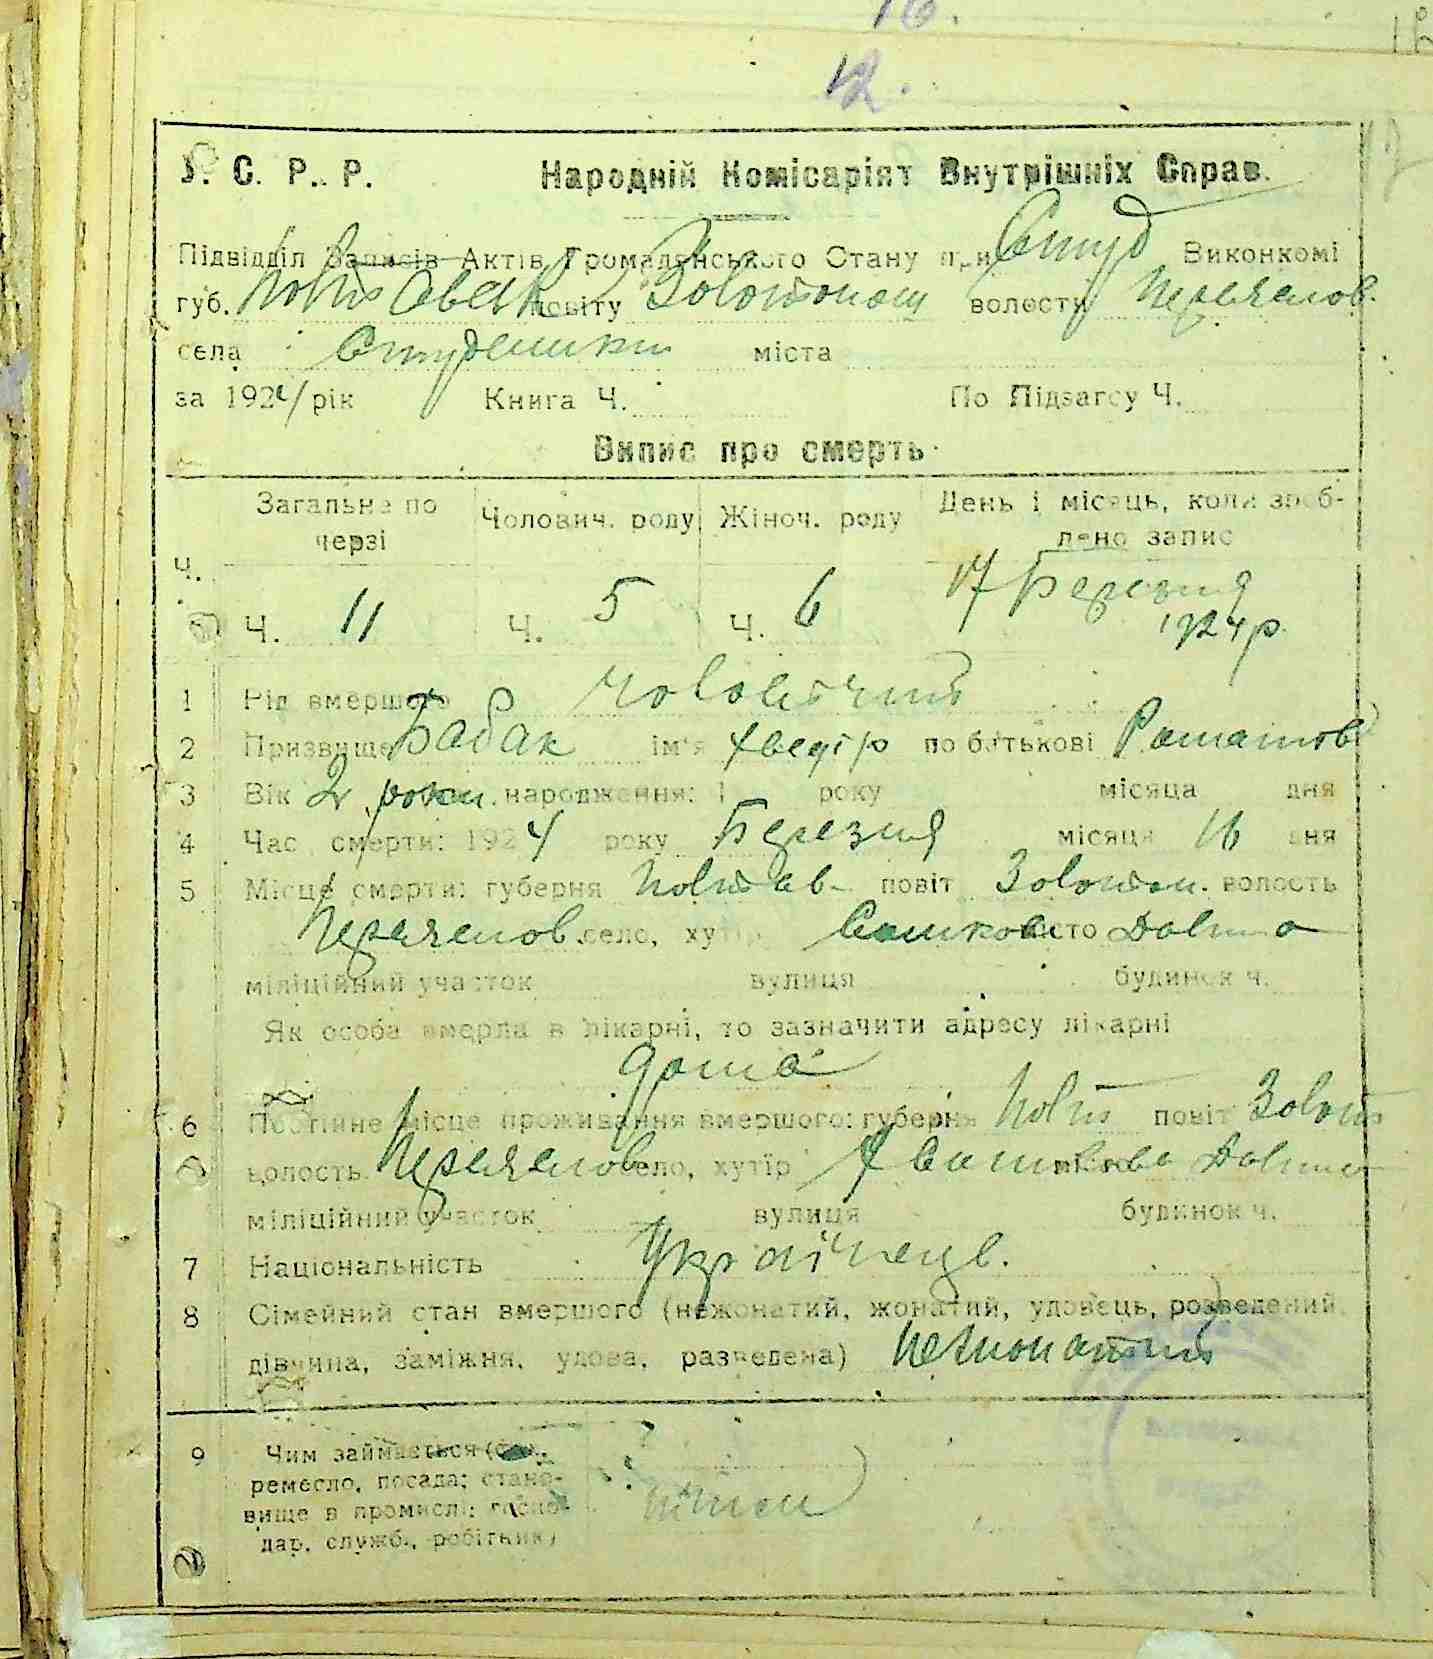 16.
12.
У. С. Р. Р. Народній Комісаріят Внутрішніх Справ.
Підвідділ Записів Актів Громадянського Стану при Студ Виконкомі
губ. Полтавськ повіту Золотонош волости Переяслов.
села Студеники міста
за 1924 рік Книга Ч. По Підзагсу Ч.
Випис про смерть
Загальне по Чолович. роду Жіноч. роду День і місяць, коли зроб-
черзі лено запис
Ч.
Ч. 11 Ч. 5 Ч. 6 17 Березня
1924 р.
1 Рід вмершого чоловічий
2 Призвище Бабак ім'я Хведір по батькові Романов
3 Вік 2 роки народження: 1 року місяца дня
4 Час смерти: 1924 року Березня місяця 16 дня
5 Місце смерти: губерня Полтав повіт Золотон. волость
село, хутір місто Долина
міліційний участок вулиця будинок ч.
Як особа вмерла в лікарні, то зазначити адресу лікарні
дома
6 Постійне місце проживання вмершого: губерня Полт повіт Золот
волость село, хутір місто Долина
міліційний участок вулиця будинок ч.
7 Національність Українець.
8 Сімейний стан вмершого (нежонатий, жонатий, удовець, розведений,
дівчина, заміжня, удова, разведена) нежонатий
9 Чим займається
ремесло, посада; стано-
вище в промислі: госпо-
дар, служб., робітник)